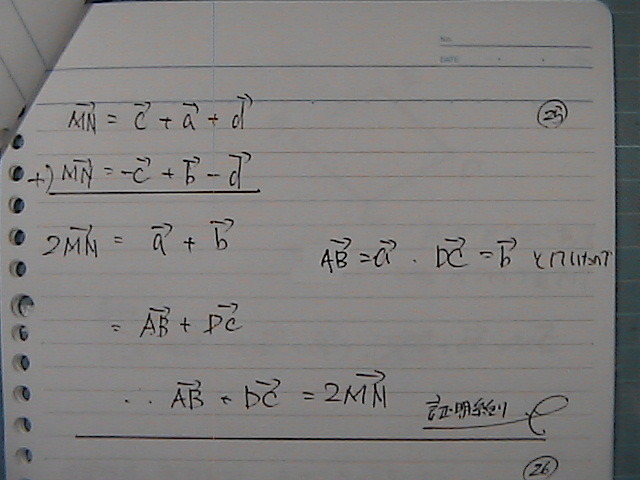 No.
DATE
MN→ = c→ + a→ + d→ ㉕
+) MN→ = -c→ + b→ - d→
2MN→ = a→ + b→ AB→ = a→ . DC→ = b→
= AB→ + DC→
∴ AB→ + DC→ = 2MN→ 証明終り
㉖